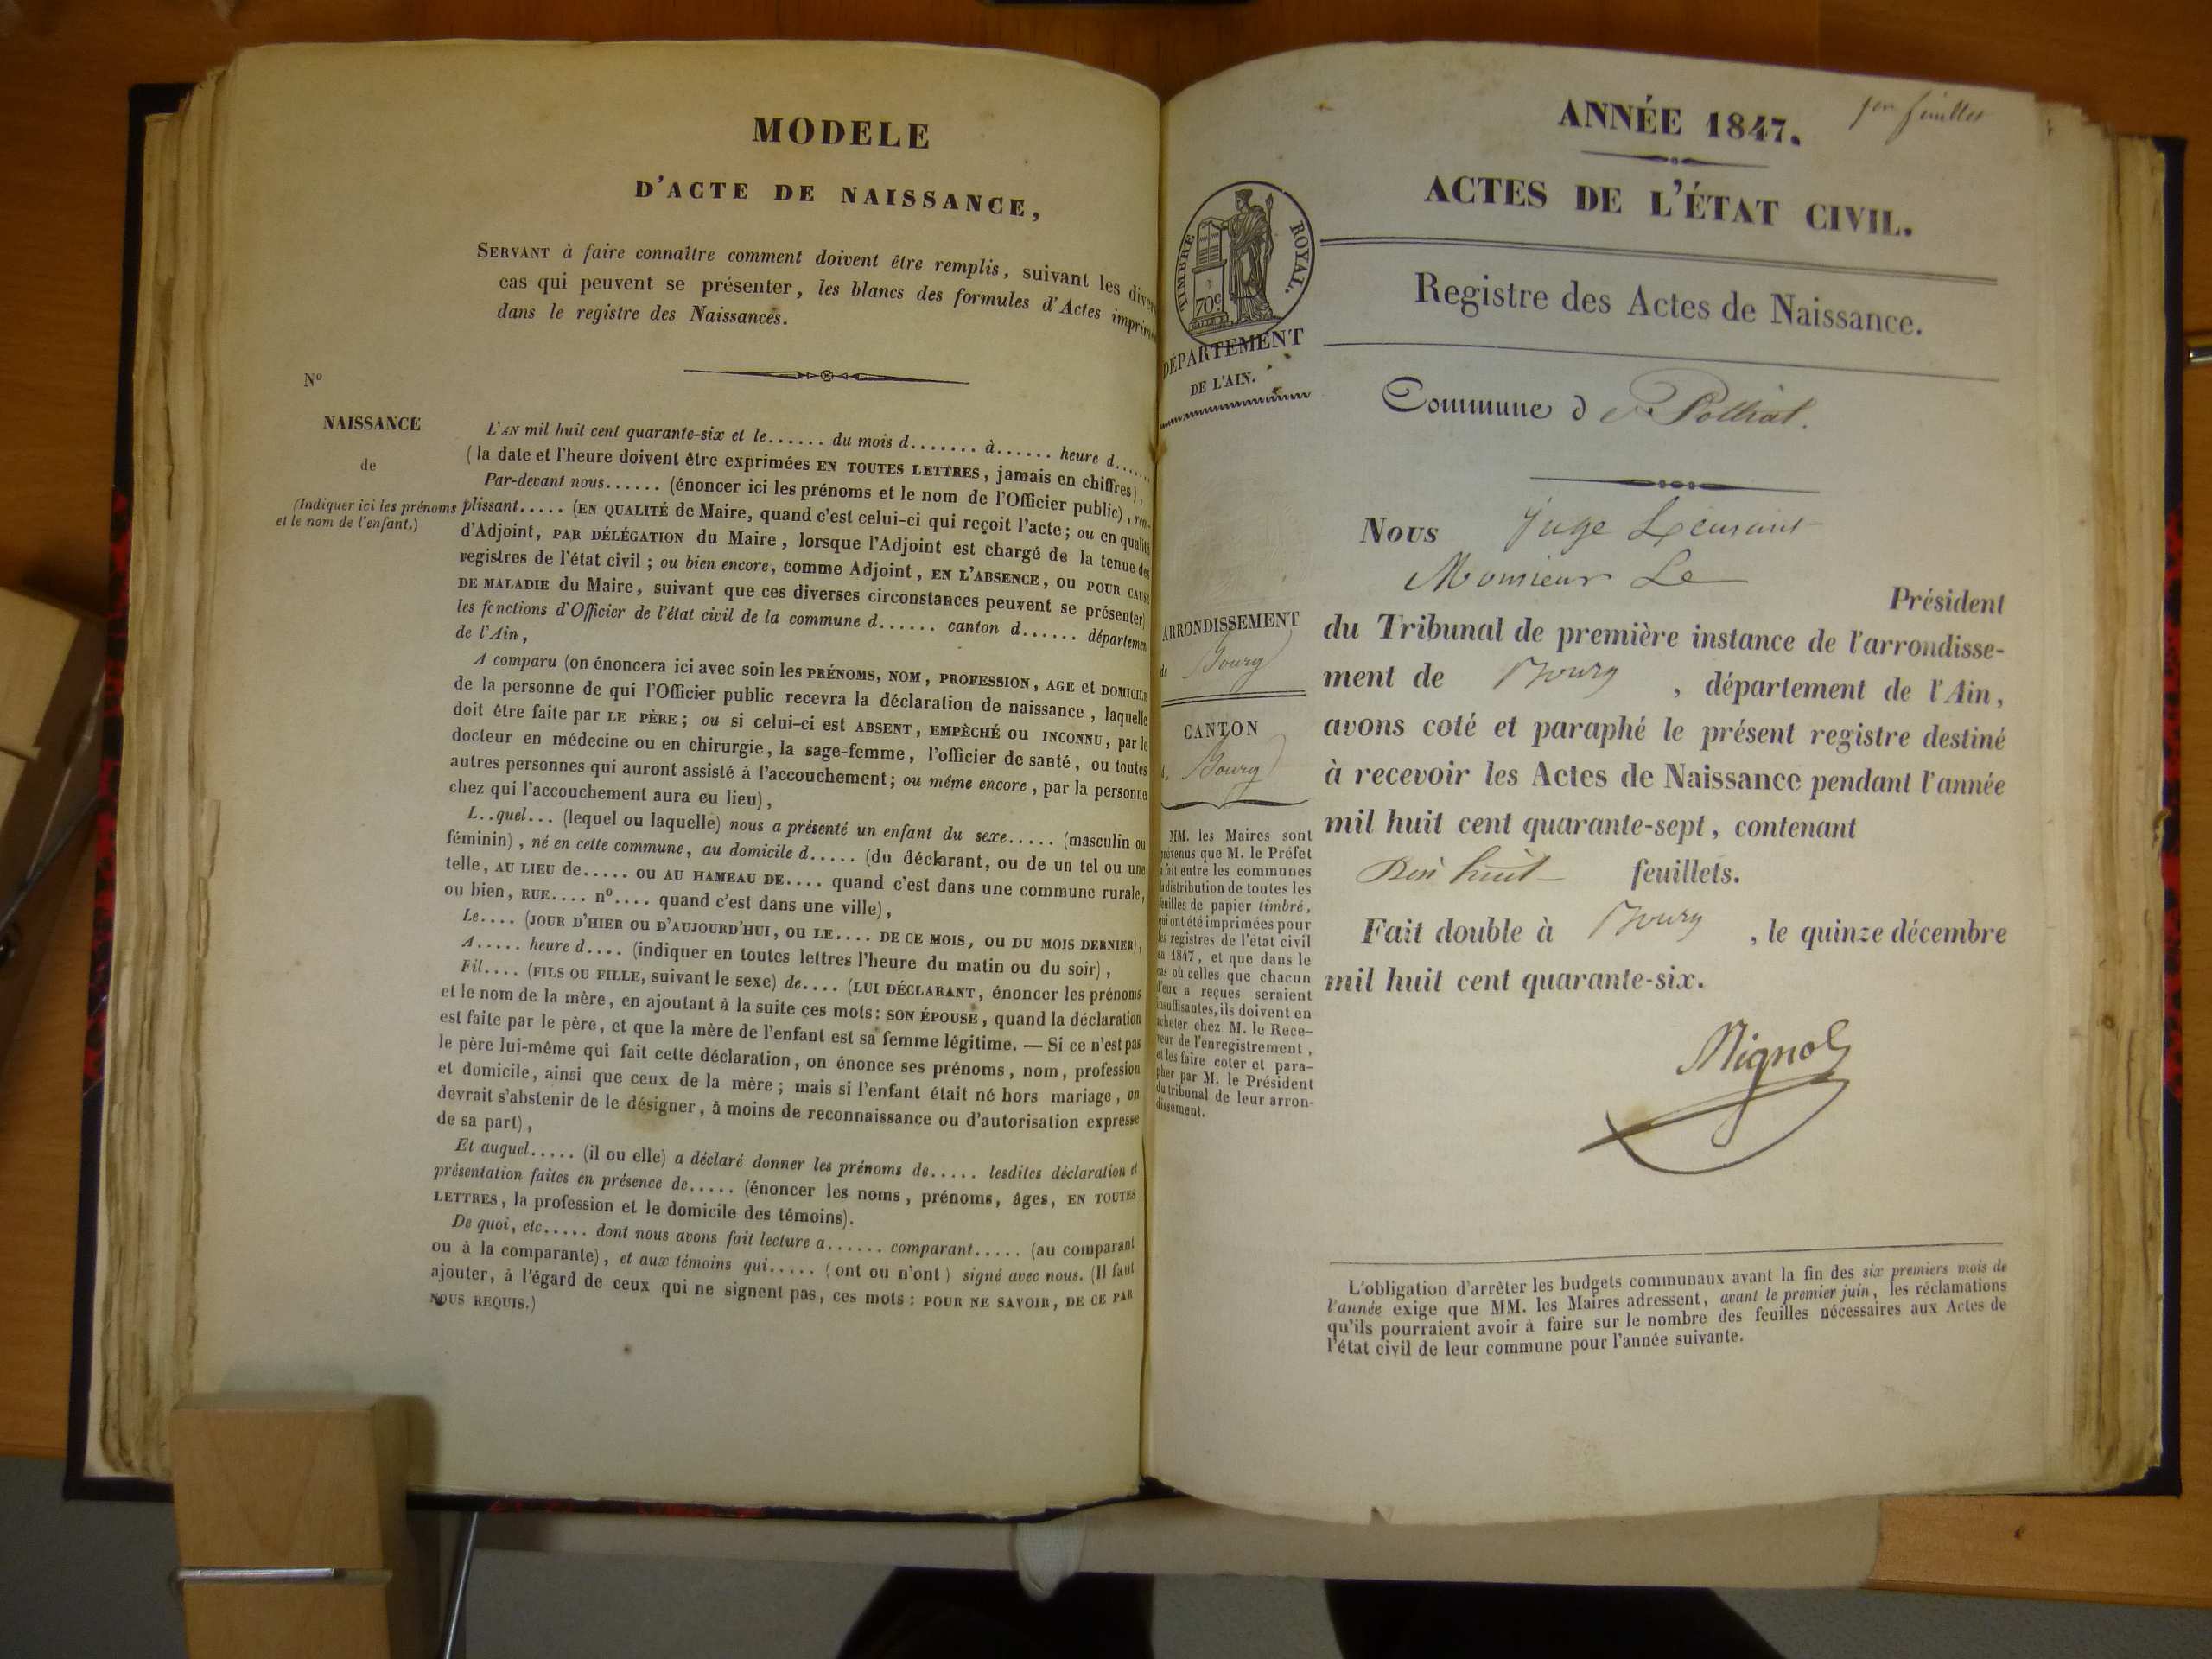 MODELE
D'ACTE DE NAISSANCE,
SERVANT à faire connaître comment doivent être remplis, suivant les
cas qui peuvent se présenter, les blancs des formules d'Actes
dans le registre des Naissances.
N°
NAISSANCE
de
(Indiquer ici les prénoms
et le nom de l'enfant.)
L'AN mil huit cent quarante-six et le...... du mois d....... à...... heure d......
(la date et l'heure doivent être exprimées EN TOUTES LETTRES, jamais en chiffres),
Par-devant nous...... (énoncer ici les prénoms et le nom de l'Officier public),
plissant..... (EN QUALITÉ de Maire, quand c'est celui-ci qui reçoit l'acte; ou en qualité
d'Adjoint, PAR DÉLÉGATION du Maire, lorsque l'Adjoint est chargé de la tenue des
registres de l'état civil; ou bien encore, comme Adjoint, EN L'ABSENCE, OU POUR CAUSE
DE MALADIE du Maire, suivant que ces diverses circonstances peuvent se présenter),
les fonctions d'Officier de l'état civil de la commune d...... canton d...... département
de l'Ain,
A comparu (on énoncera ici avec soin les PRÉNOMS, NOM, PROFESSION, AGE et DOMICILE
de la personne de qui l'Officier public recevra la déclaration de naissance, laquelle
doit être faite par LE PÈRE; ou si celui-ci est ABSENT, EMPÊCHÉ OU INCONNU, par le
docteur en médecine ou en chirurgie, la sage-femme, l'officier de santé, ou toutes
autres personnes qui auront assisté à l'accouchement; ou même encore, par la personne
chez qui l'accouchement aura eu lieu),
L..quel... (lequel ou laquelle) nous a présenté un enfant du sexe..... (masculin ou
féminin), né en cette commune, au domicile d..... (du déclarant, ou de un tel ou une
telle, AU LIEU de..... OU AU HAMEAU DE.... quand c'est dans une commune rurale,
ou bien, RUE.... n°.... quand c'est dans une ville),
Le.... (JOUR D'HIER OU D'AUJOURD'HUI, OU LE.... DE CE MOIS, OU DU MOIS DERNIER),
A..... heure d.... (indiquer en toutes lettres l'heure du matin ou du soir),
Fil.... (FILS OU FILLE, suivant le sexe) de.... (LUI DÉCLARANT, énoncer les prénoms
et le nom de la mère, en ajoutant à la suite ces mots: SON ÉPOUSE, quand la déclaration
est faite par le père, et que la mère de l'enfant est sa femme légitime. — Si ce n'est pas
le père lui-même qui fait cette déclaration, on énonce ses prénoms, nom, profession
et domicile, ainsi que ceux de la mère; mais si l'enfant était né hors mariage, on
devrait s'abstenir de le désigner, à moins de reconnaissance ou d'autorisation expresse
de sa part),
Et auquel..... (il ou elle) a déclaré donner les prénoms de..... lesdites déclaration et
présentation faites en présence de..... (énoncer les noms, prénoms, âges, EN TOUTES
LETTRES, la profession et le domicile des témoins).
De quoi, etc..... dont nous avons fait lecture a...... comparant..... (au comparant
ou à la comparante), et aux témoins qui..... (ont ou n'ont) signé avec nous. (Il faut
ajouter, à l'égard de ceux qui ne signent pas, ces mots: POUR NE SAVOIR, DE CE PAR
NOUS REQUIS.)
ANNÉE 1847.
ACTES DE L'ÉTAT CIVIL.
TIMBRE ROYAL.
70c
DÉPARTEMENT
DE L'AIN.
Registre des Actes de Naissance.
Commune de Polliat.
ARRONDISSEMENT
de Bourg
CANTON
Bourg
MM. les Maires sont
prévenus que M. le Préfet
a fait entre les communes
la distribution de toutes les
feuilles de papier timbré,
qui ont été imprimées pour
les registres de l'état civil
en 1847, et que dans le
cas où celles que chacun
d'eux a reçues seraient
insuffisantes, ils doivent en
acheter chez M. le Rece-
veur de l'enregistrement,
et les faire coter et para-
pher par M. le Président
du tribunal de leur arron-
dissement.
NOUS Juge
Monsieur Le
Président
du Tribunal de première instance de l'arrondisse-
ment de Bourg, département de l'Ain,
avons coté et paraphé le présent registre destiné
à recevoir les Actes de Naissance pendant l'année
mil huit cent quarante-sept, contenant
huit feuillets.
Fait double à Bourg, le quinze décembre
mil huit cent quarante-six.
L'obligation d'arrêter les budgets communaux avant la fin des six premiers mois de
l'année exige que MM. les Maires adressent, avant le premier juin, les réclamations
qu'ils pourraient avoir à faire sur le nombre des feuilles nécessaires aux Actes de
l'état civil de leur commune pour l'année suivante.